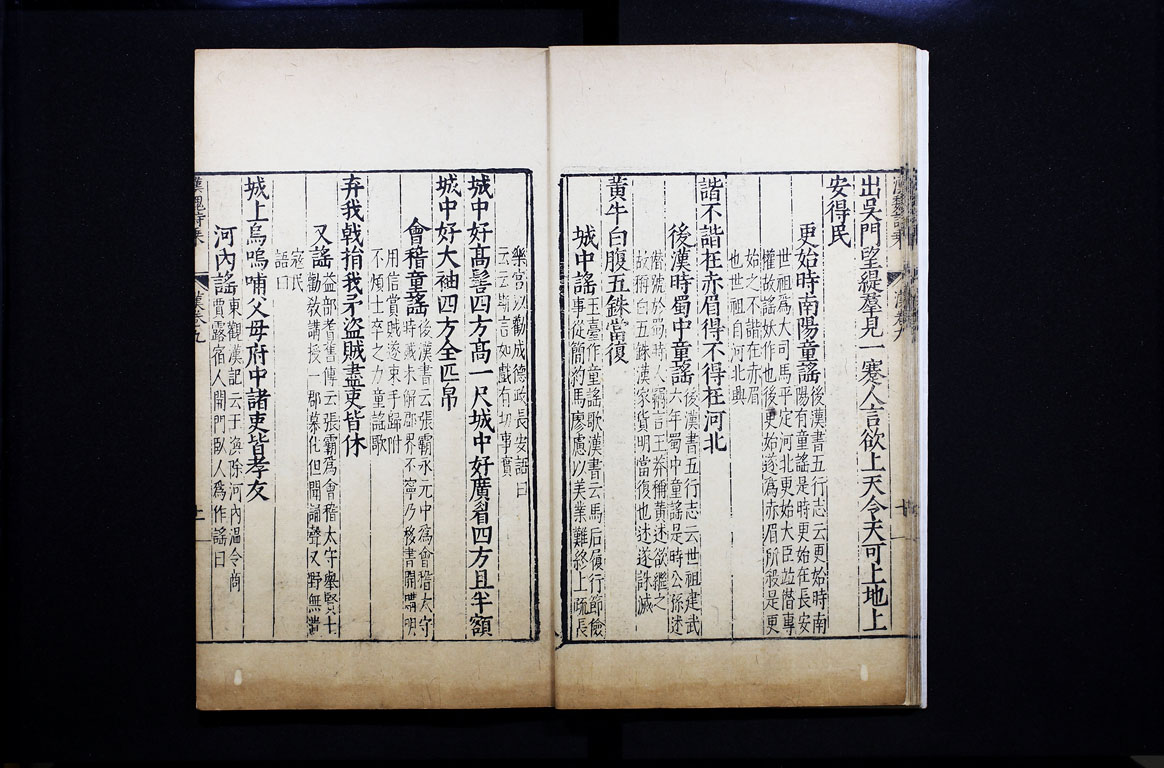 出吳門望緹羣見一蹇人言欲上天令天可上地上
安得民
更始時南陽童謠
後漢書五行志云更始時南
陽有童謠是時更始在長安
世祖爲大司馬平定河北更始大臣並僭專
權故謠妖作也後更始遂爲赤眉所殺是更
始之不諧在赤眉
也世祖自河北興
諧不諧在赤眉得不得在河北
後漢時蜀中童謠
後漢書五行志云世祖建武
六年蜀中童謠是時公孫述
僭號於蜀時人竊言王莽稱黃述欲繼之
故稱白五銖漢家貨明當復也述遂誅滅
黃牛白腹五銖當復
城中謠
王臺作童謠歌漢書云馬后履行節儉
事從簡約馬廖慮以美業難終上疏長
樂宮以勸成德政長安語曰
云云斯言如戲有切事實
城中好高髻四方高一尺城中好廣眉四方且半額
城中好大袖四方全匹帛
會稽童謠
後漢書云張霸永元中爲會稽太守
時賊未解郡界不寧乃移書開購明
用信賞賊遂束手歸附
不煩士卒之力童謠歌
弃我戟捐我矛盜賊盡吏皆休
又謠
益部耆舊傳云張霸爲會稽太守舉賢士
勸教講授一郡慕化但聞誦聲又野無遺
寇民
語曰
城上烏嗚哺父母府中諸吏皆孝友
河內謠
東觀漢記云于渙除河內溫令商
賈露宿人開門臥人爲作謠曰
漢魏詩乘
漢卷九
十
漢魏詩乘
漢卷九